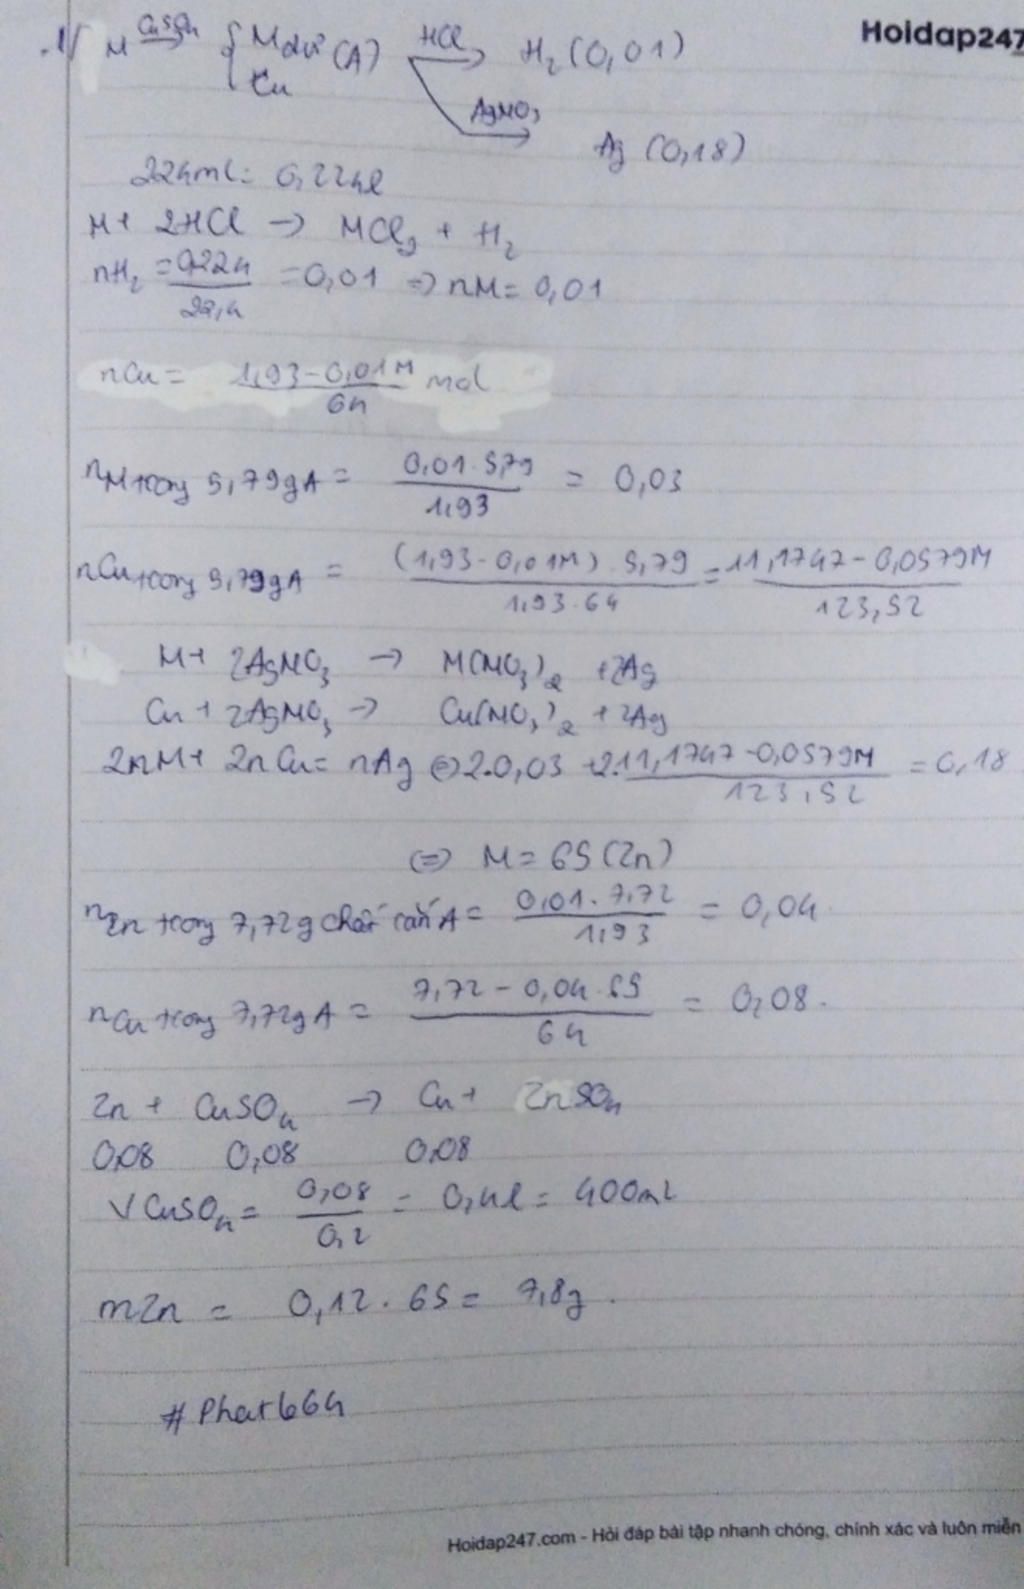 Hoidap247
1/ M CuSO4→ { M dư (A) HCl→ H2 (0,01)
Cu
AgNO3→ Ag (0,18)
224ml = 0,224l
M + 2HCl → MCl2 + H2
nH2 = 0,224/22,4 = 0,01 => nM = 0,01
nCu = 1,93-0,01M/64 mol
nM trong 5,79gA = 0,01.5,79/1,93 = 0,03
nCu trong 5,79gA = (1,93-0,01M).5,79/1,93.64 = 11,1747-0,0579M/123,52
M + 2AgNO3 → M(NO3)2 + 2Ag
Cu + 2AgNO3 → Cu(NO3)2 + 2Ag
2nM + 2nCu = nAg <=> 2.0,03 + 2.11,1747-0,0579M/123,52 = 0,18
<=> M = 65 (Zn)
nZn trong 7,72g chất rắn A = 0,01.7,72/1,93 = 0,04
nCu trong 7,72gA = 7,72-0,04.65/64 = 0,08.
Zn + CuSO4 → Cu + ZnSO4
0,08 0,08 0,08
VCuSO4 = 0,08/0,2 = 0,4l = 400ml
mZn = 0,12.65 = 7,8g.
#Phat664
Hoidap247.com - Hỏi đáp bài tập nhanh chóng, chính xác và luôn miễn